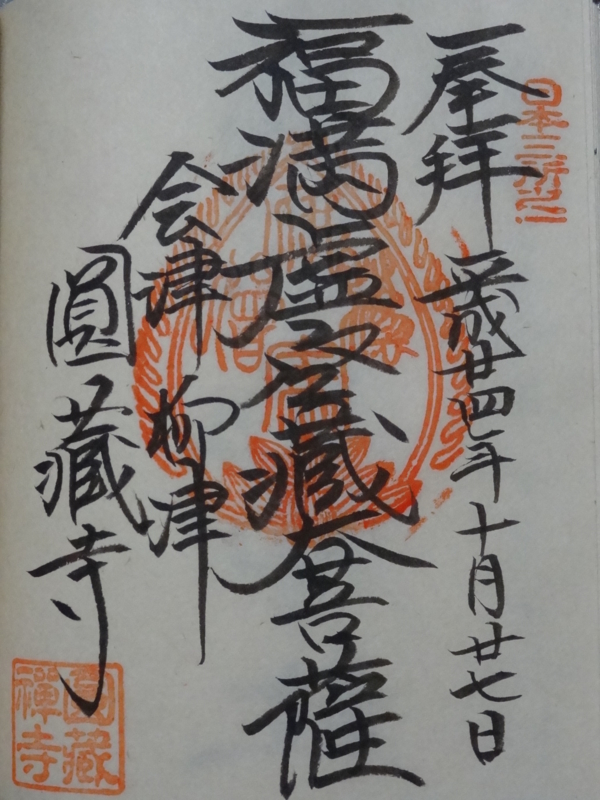 日本三所之一
奉拝 平成廿四年十月廿七日
福満虚空藏大菩薩
会津 柳津
圓藏寺
圓藏禅寺